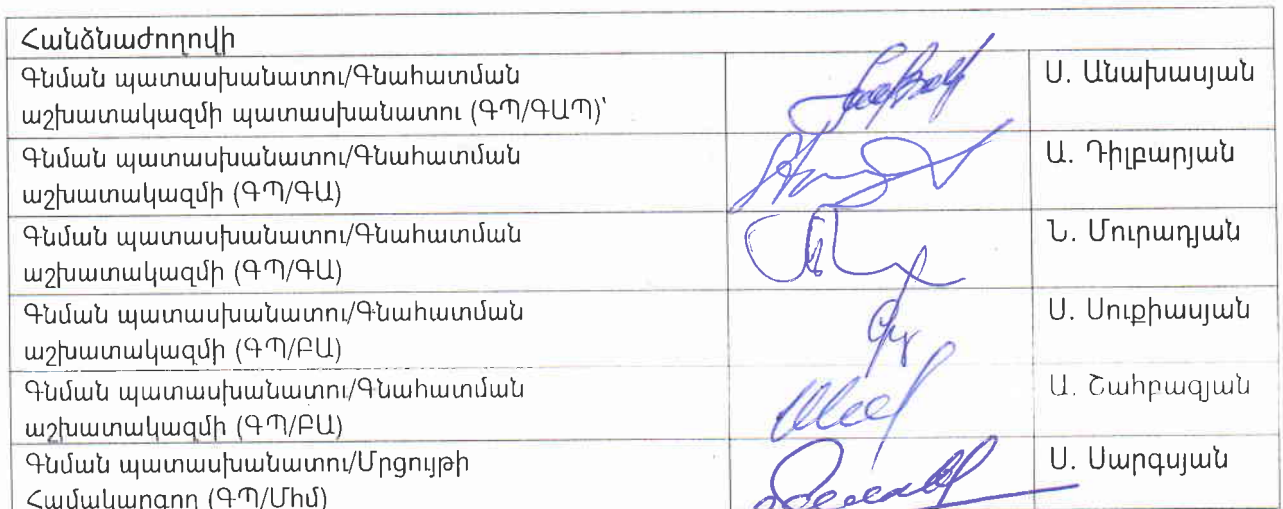 Հանձնաժողովի
Գնման պատասխանատու/Գնահատման
աշխատակազմի պատասխանատու (ԳՊ/ԳԱՊ)՝
Ս. Անախասյան
Գնման պատասխանատու/Գնահատման
աշխատակազմի (ԳՊ/ԳԱ)
Ա. Դիլբարյան
Գնման պատասխանատու/Գնահատման
աշխատակազմի (ԳՊ/ԳԱ)
Ն. Մուրադյան
Գնման պատասխանատու/Գնահատման
աշխատակազմի (ԳՊ/ԲԱ)
Ս. Սուքիասյան
Գնման պատասխանատու/Գնահատման
աշխատակազմի (ԳՊ/ԲԱ)
Ա. Շահբազյան
Գնման պատասխանատու/Մրցույթի
Համակարգող (ԳՊ/Մհմ)
Ս. Սարգսյան